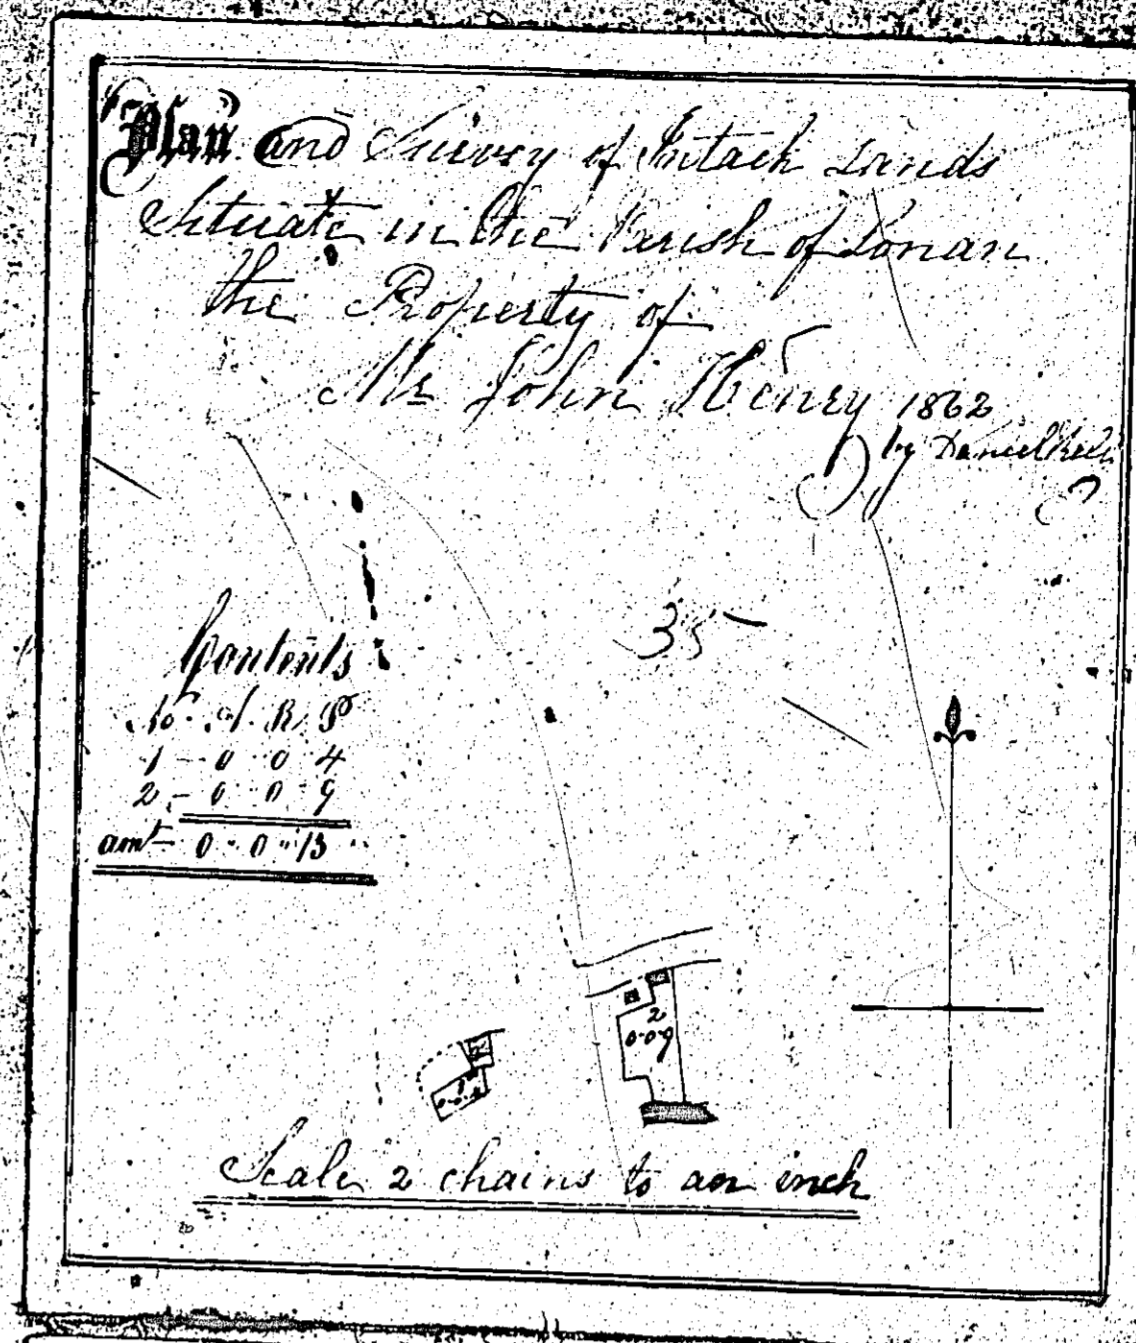 Plan and Survey of Intack Lands
Situate in the Parish of Lonan
the Property of
Mr John Henry 1862
by Daniel
35
Contents
No. A. R. P
1 - 0 0 4
2 - 0 0 9
amt - 0 " 0 " 13
2
0-0-9
1
0-0-4
Scale 2 chains to an inch